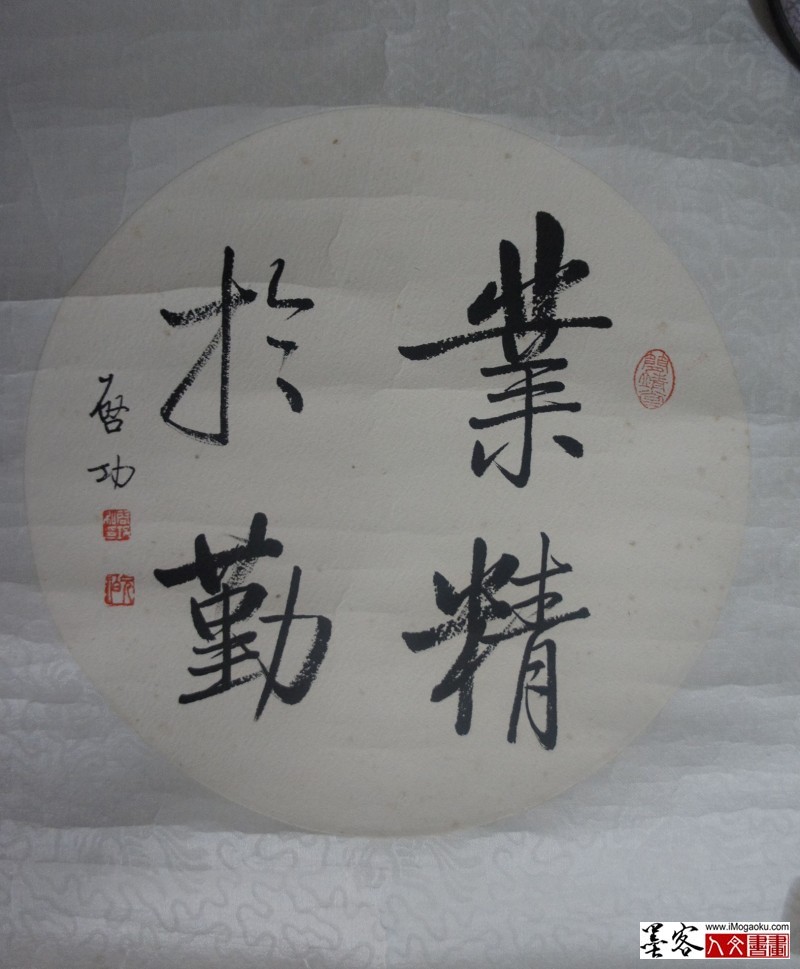 業精
於勤
啓功
墨客
www.iMogaoku.com
人文書畫